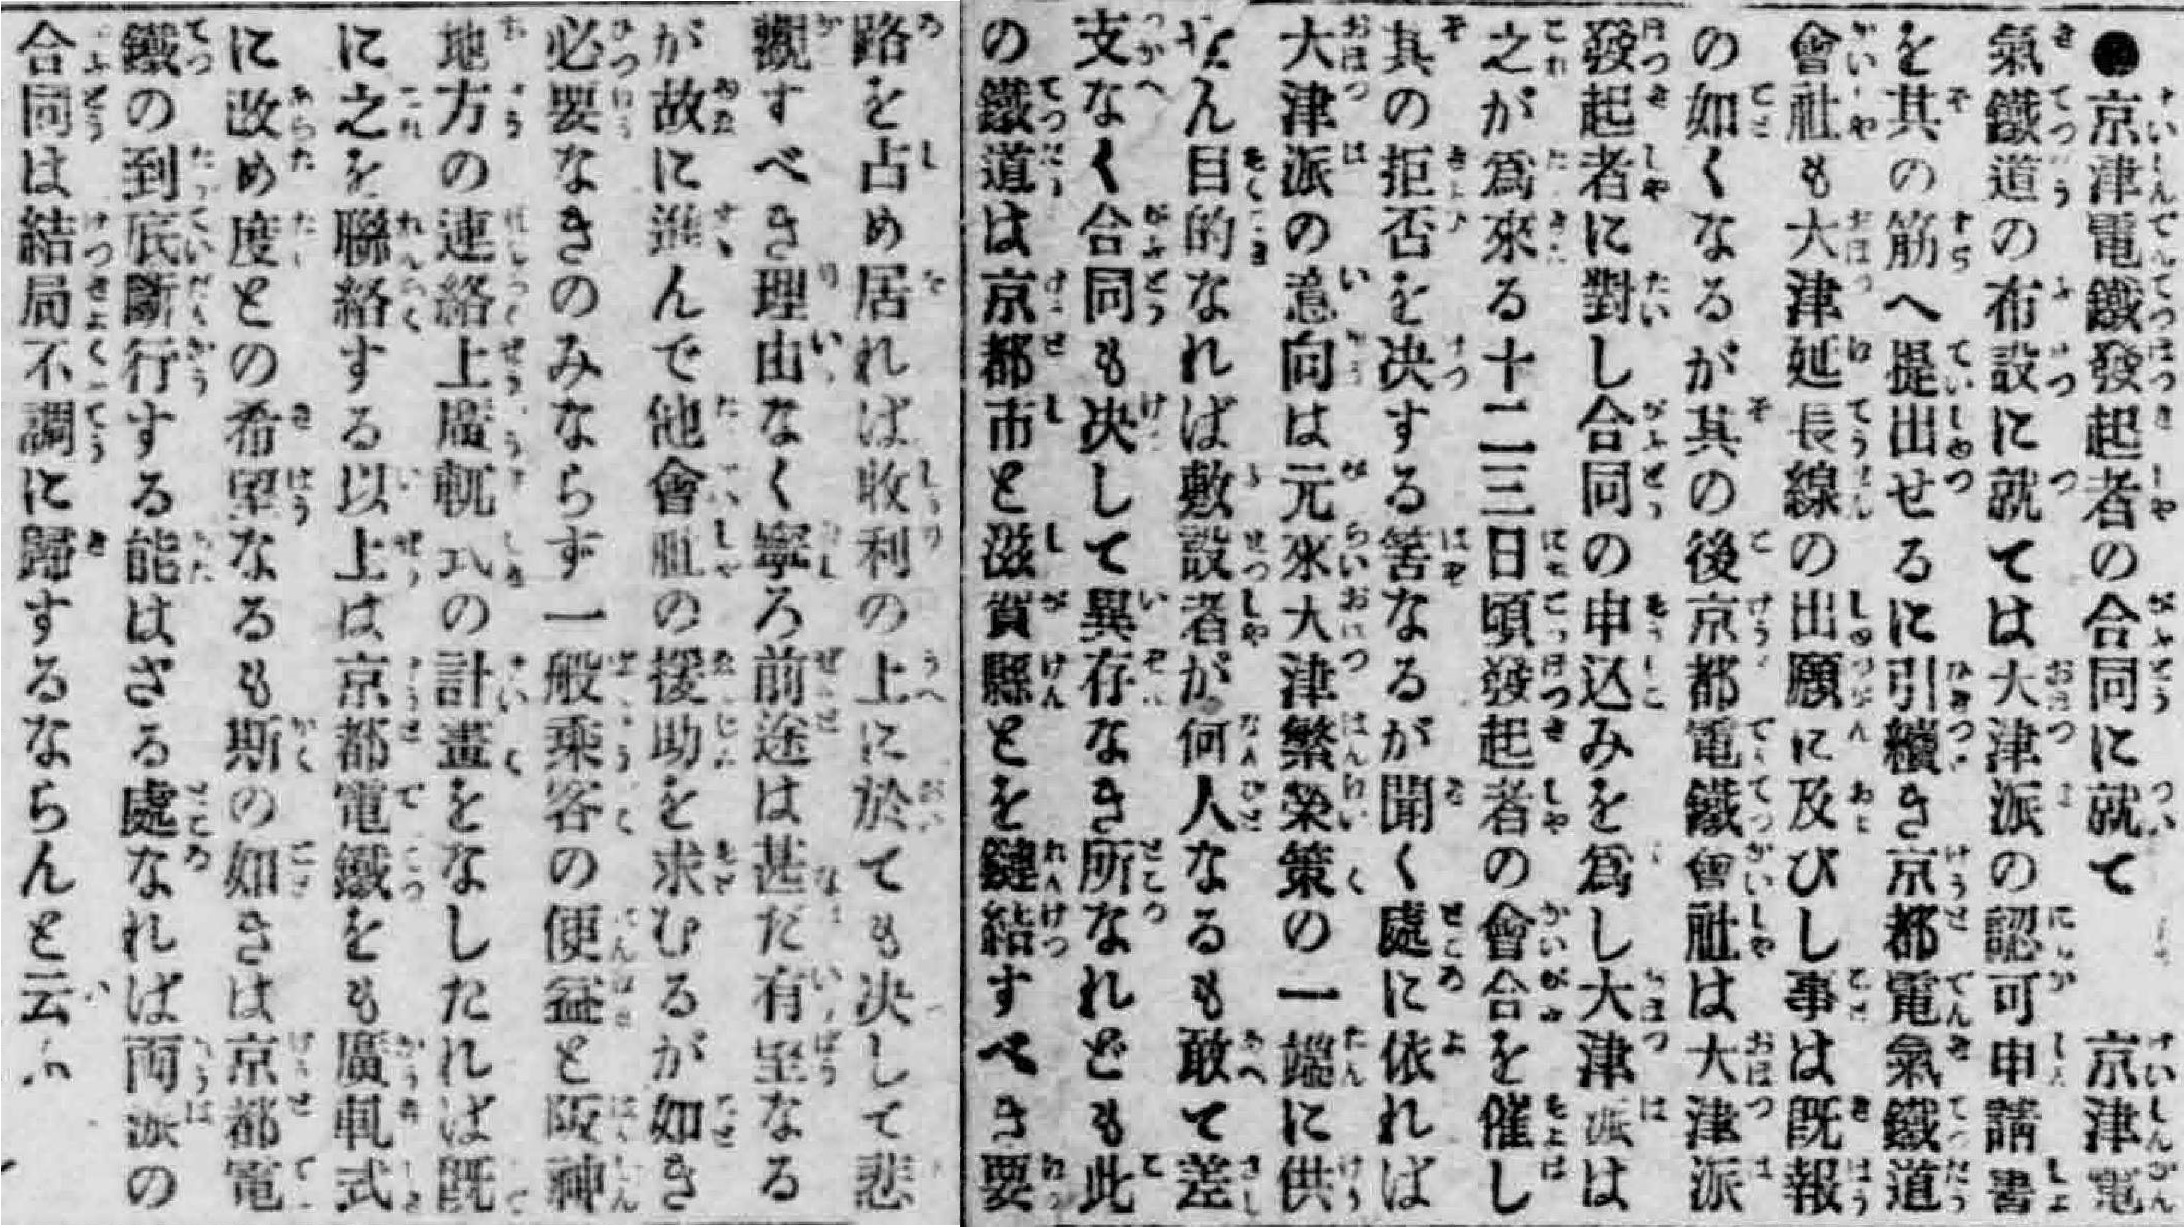 ●京津電鐵發起者の合同に就て　京津電
氣鐵道の布設に就ては大津派の認可申請書
を其の筋へ提出せるに引續き京都電氣鐵道
會社も大津延長線の出願に及びし事は既報
の如くなるが其の後京都電鐵會社は大津派
發起者に對し合同の申込みを爲し大津派は
之が爲來る十二三日頃發起者の會合を催し
其の拒否を决する筈なるが聞く處に依れば
大津派の意向は元來大津繁榮策の一端に供
せん目的なれば敷設者が何人なるも敢て差
支なく合同も决して異存なき所なれども此
の鐵道は京都市と滋賀縣とを鏈結すべき要
路を占め居れば收利の上に於ても决して悲
觀すべき理由なく寧ろ前途は甚だ有望なる
が故に進んで他會社の援助を求むるが如き
必要なきのみならず一般乘客の便益と阪神
地方の連絡上廣軌式の計畫をなしたれば既
に之を聯絡する以上は京都電鐵をも廣軌式
に改め度との希望なるも斯の如きは京都電
鐵の到底斷行する能はざる處なれば両派の
合同は結局不調に歸するならんと云ふ